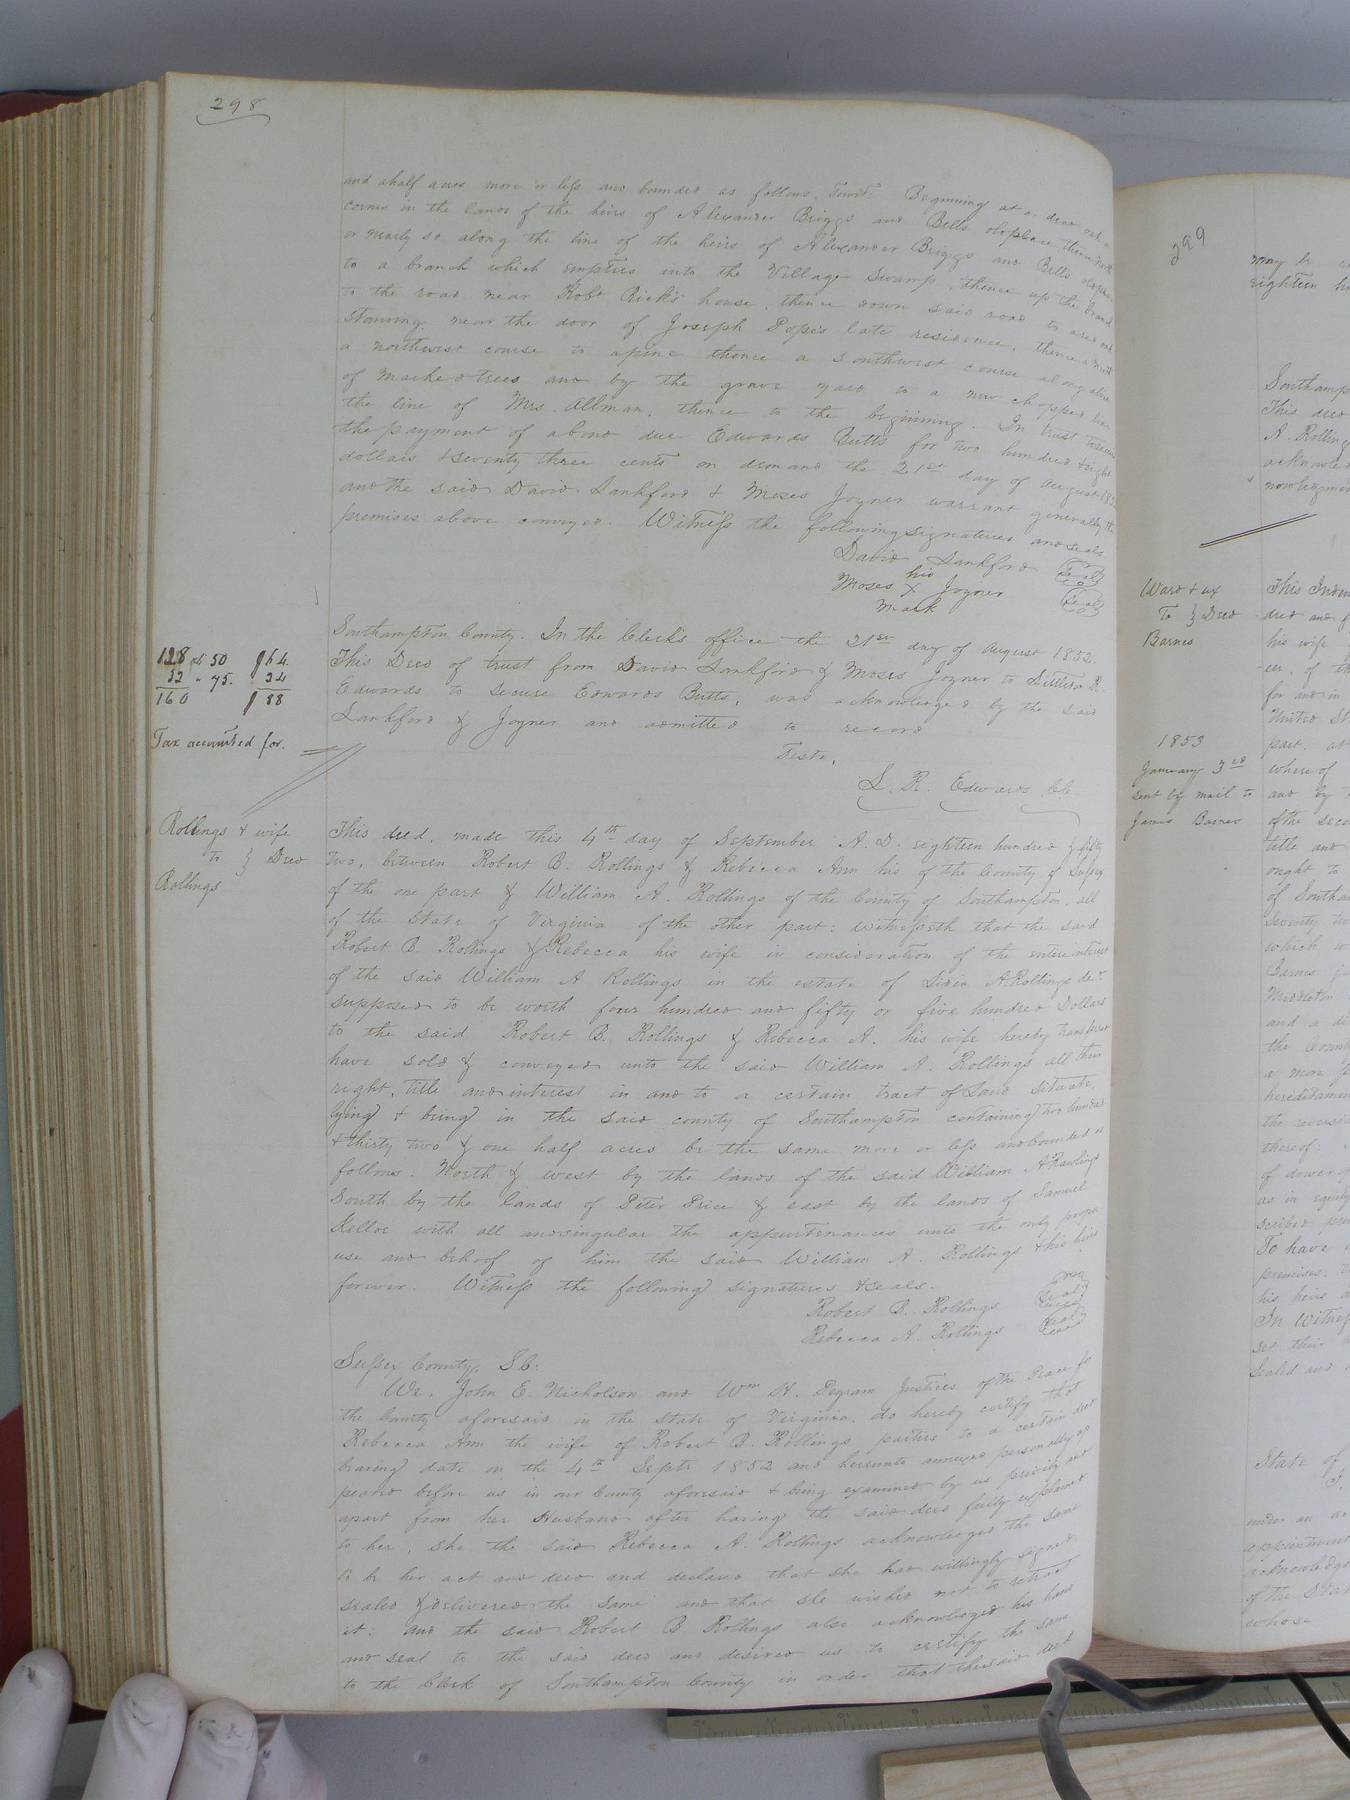 298
and a half acres more or less and bounded as follows, Towit: Beginning at a dead oak a
corner in the lands of the heirs of Alexander Briggs and Bells old place, thence North
or nearly so along the line of the heirs of Alexander Briggs and Bells old place
to a branch which empties into the Village Swamp, thence up the branch
to the road near Robt Ricks house, thence down said road to a red oak
standing near the door of Joseph Pope's late residence, thence a North
a northwest course to a pine thence a southwest course along a line
of marked trees and by the grave yard to a new chopped line
the line of Mrs. Allman, thence to the beginning. In trust to secure
the payment of a bond due Edwards Butts for two hundred & eight
dollars & seventy three cents on demand the 21st day of August 1852
and the said David Lankford & Moses Joyner warrant generally the
premises above conveyed. Witness the following signatures and seals
David Lankford Seal
his
Moses X Joyner Seal
Mark
Southampton County. In the Clerk's office the 21st day of August 1852.
This Deed of trust from David Lankford & Moses Joyner to Littleto R.
Edwards to secure Edwards Butts, was acknowledged by the said
Lankford & Joyner and admitted to record
Teste,
L. R. Edwards Clk
128 at 50 $64.
32 " 75. 24
160 $88
Tax accounted for.
Rollings & wife
to } Deed
Rollings
This deed, made this 4th day of September A. D. eighteen hundred & fifty
two, between Robert B. Rollings & Rebecca Ann his of the County of Sussex
of the one part & William A. Rollings of the County of Southampton, all
of the State of Virginia of the other part: witnesseth that the said
Robert B. Rollings & Rebecca his wife in consideration of the entire interest
of the said William A Rollings in the estate of A Rollings decd
supposed to be worth four hundred and fifty or five hundred Dollars
to the said Robert B. Rollings & Rebecca A. his wife hereby transferred
have sold & conveyed unto the said William A. Rollings all their
right, title and interest in and to a certain tract of Land situate,
lying & being in the said county of Southampton containing two hundred
& thirty two & one half acres be the same more or less and bounded as
follows. North & west by the lands of the said William A Rawlings
South by the lands of Peter Price & east by the lands of Samuel
Kelloe with all and singular the appurtinances unto the only proper
use and behoof of him the said William A. Rollings & his heirs
forever. Witness the following signatures & seals.
Robert B. Rollings Seal
Rebecca A. Rollings Seal
Sussex County, SC:
We, John E. Nicholson and Wm H. Pegram Justices of the Peace for
the County aforesaid in the State of Virginia, do hereby certify that
Rebecca Ann the wife of Robert B. Rollings parties to a certain deed
bearing date on the 4th Septr 1852 and hereunto annexed personally ap
peared before us in our County aforesaid & being examined by us privily and
apart from her Husband after having the said deed fully explained
to her, she the said Rebecca A. Rollings acknowledged the same
to be her act and deed and declared that she had willingly signed,
sealed & delivered the same and that she wished not to retract
it: and the said Robert B. Rollings also acknowledged his hand
and seal to the said deed and desired us to certify the same
to the Clerk of Southampton County in order that the said deed
299
may be
eighteen
Southamp
This deed
A. Rolling
acknowled
nowledgmen
Ward & ux
To } Deed
Barnes
1853
January 3rd
sent by mail to
James Barnes
This Inden
deed and f
his wife
for and in
United St
part, at
where of
and by
of the seco
title and
ought to
of Southa
seventy
which w
Barnes
Middleton
and a
the Coun
a more p
hereditamen
the reversi
thereof.
of dower
as in equity
scribed pre
To have
premises,
his heirs
In Witnes
set their
sealed and
State of
I,
under an ac
appointment
acknowledge
of the State
whose